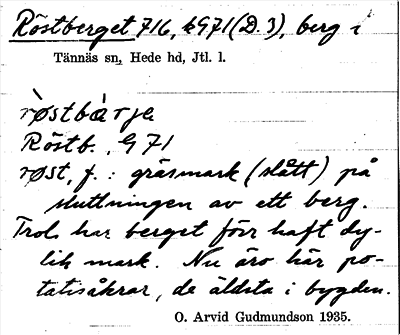 Röstberget 716, kG71 (D. 3), berg i
Tännäs sn, Hede hd, Jtl. l.
røstbàrjɐ
Röstb. G 71
røst, f. : gräsmark (slått) på
sluttningen av ett berg.
Trol. har berget förr haft dy-
lik mark. Nu äro här po-
tatisåkrar, de äldsta i bygden.
O. Arvid Gudmundson 1935.